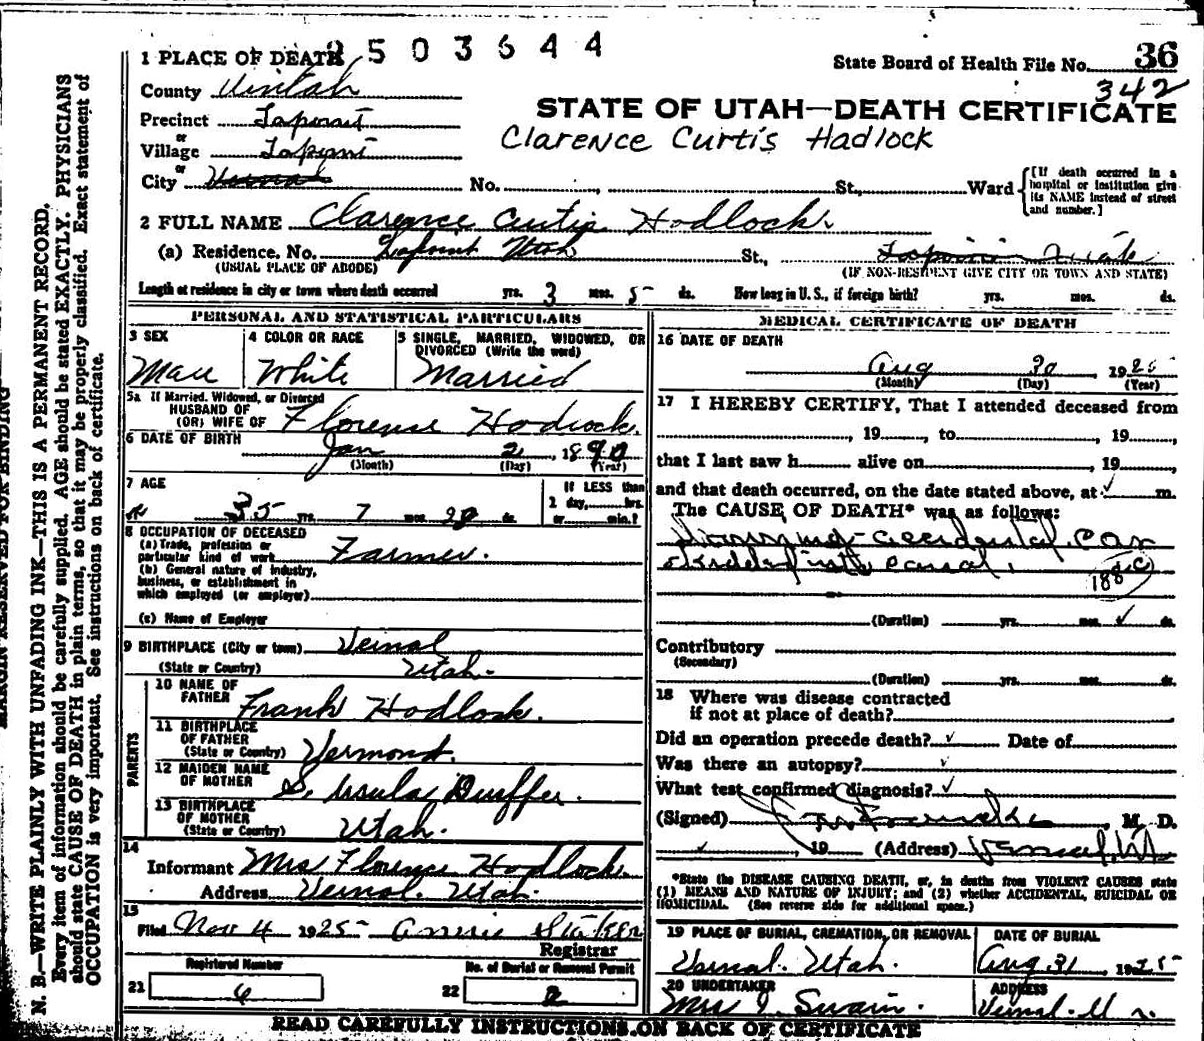 2503644
1 PLACE OF DEATH
State Board of Health File No. 36
342
County Uintah
STATE OF UTAH—DEATH CERTIFICATE
Precinct Lapoint
Clarence Curtis Hadlock
or
Village Lapoint
or
City Vernal No. , St., Ward
[If death occurred in a hospital or institution give its NAME instead of street and number.]
2 FULL NAME Clarence Curtis Hodlock.
(a) Residence. No. Lapoint Utah St., Lapoint Utah
(USUAL PLACE OF ABODE) (IF NON-RESIDENT GIVE CITY OR TOWN AND STATE)
Length of residence in city or town where death occurred yrs. 3 mos. 5 ds. How long in U. S., if foreign birth? yrs. mos. ds.
PERSONAL AND STATISTICAL PARTICULARS
3 SEX
4 COLOR OR RACE
5 SINGLE, MARRIED, WIDOWED, OR DIVORCED (Write the word)
White
Married
5a If Married, Widowed, or Divorced
HUSBAND OF
(OR) WIFE OF Florence Hodlock.
6 DATE OF BIRTH
Jan 2, 1890
(Month) (Day) (Year)
7 AGE
If LESS than
1 day, hrs.
or min.?
35 yrs. 7 mos. 28 ds.
8 OCCUPATION OF DECEASED
(a) Trade, profession or
particular kind of work Farmer.
(b) General nature of industry,
business, or establishment in
which employed (or employer)
(c) Name of Employer
9 BIRTHPLACE (City or town) Vernal
(State or Country) Utah.
PARENTS
10 NAME OF
FATHER Frank Hodlock.
11 BIRTHPLACE
OF FATHER
(State or Country) Vermont.
12 MAIDEN NAME
OF MOTHER S. Ursula Durffer.
13 BIRTHPLACE
OF MOTHER
(State or Country) Utah.
14
Informant Mrs Florence Hodlock.
Address Vernal. Utah.
15
Filed Nov 4 1925 Registrar
Registered Number
No. of Burial or Removal Permit
21 6
22 2
MEDICAL CERTIFICATE OF DEATH
16 DATE OF DEATH
Aug 30 1925
(Month) (Day) (Year)
17 I HEREBY CERTIFY, That I attended deceased from
, 19 , to , 19 ,
that I last saw h alive on , 19 ,
and that death occurred, on the date stated above, at ✓ m.
The CAUSE OF DEATH* was as follows:
Drowning - accidental. Car
skidded into canal.
188
(Duration) yrs. mos. ✓ ds.
Contributory
(Secondary)
(Duration) yrs. mos. ds.
18 Where was disease contracted
if not at place of death?
Did an operation precede death? ✓ Date of
Was there an autopsy? ✓
What test confirmed diagnosis? ✓
(Signed) , M. D.
✓ , 19 (Address) Vernal, Ut
*State the DISEASE CAUSING DEATH, or, in deaths from VIOLENT CAUSES state
(1) MEANS AND NATURE OF INJURY; and (2) whether ACCIDENTAL, SUICIDAL OR
HOMICIDAL. (See reverse side for additional space.)
19 PLACE OF BURIAL, CREMATION, OR REMOVAL
DATE OF BURIAL
Vernal. Utah.
Aug 31, 1925
20 UNDERTAKER
ADDRESS
Mrs J. Swain.
Vernal.
READ CAREFULLY INSTRUCTIONS ON BACK OF CERTIFICATE
MARGIN RESERVED FOR BINDING
N. B.—WRITE PLAINLY WITH UNFADING INK—THIS IS A PERMANENT RECORD.
Every item of information should be carefully supplied. AGE should be stated EXACTLY. PHYSICIANS
should state CAUSE OF DEATH in plain terms, so that it may be properly classified. Exact statement of
OCCUPATION is very important. See instructions on back of certificate.